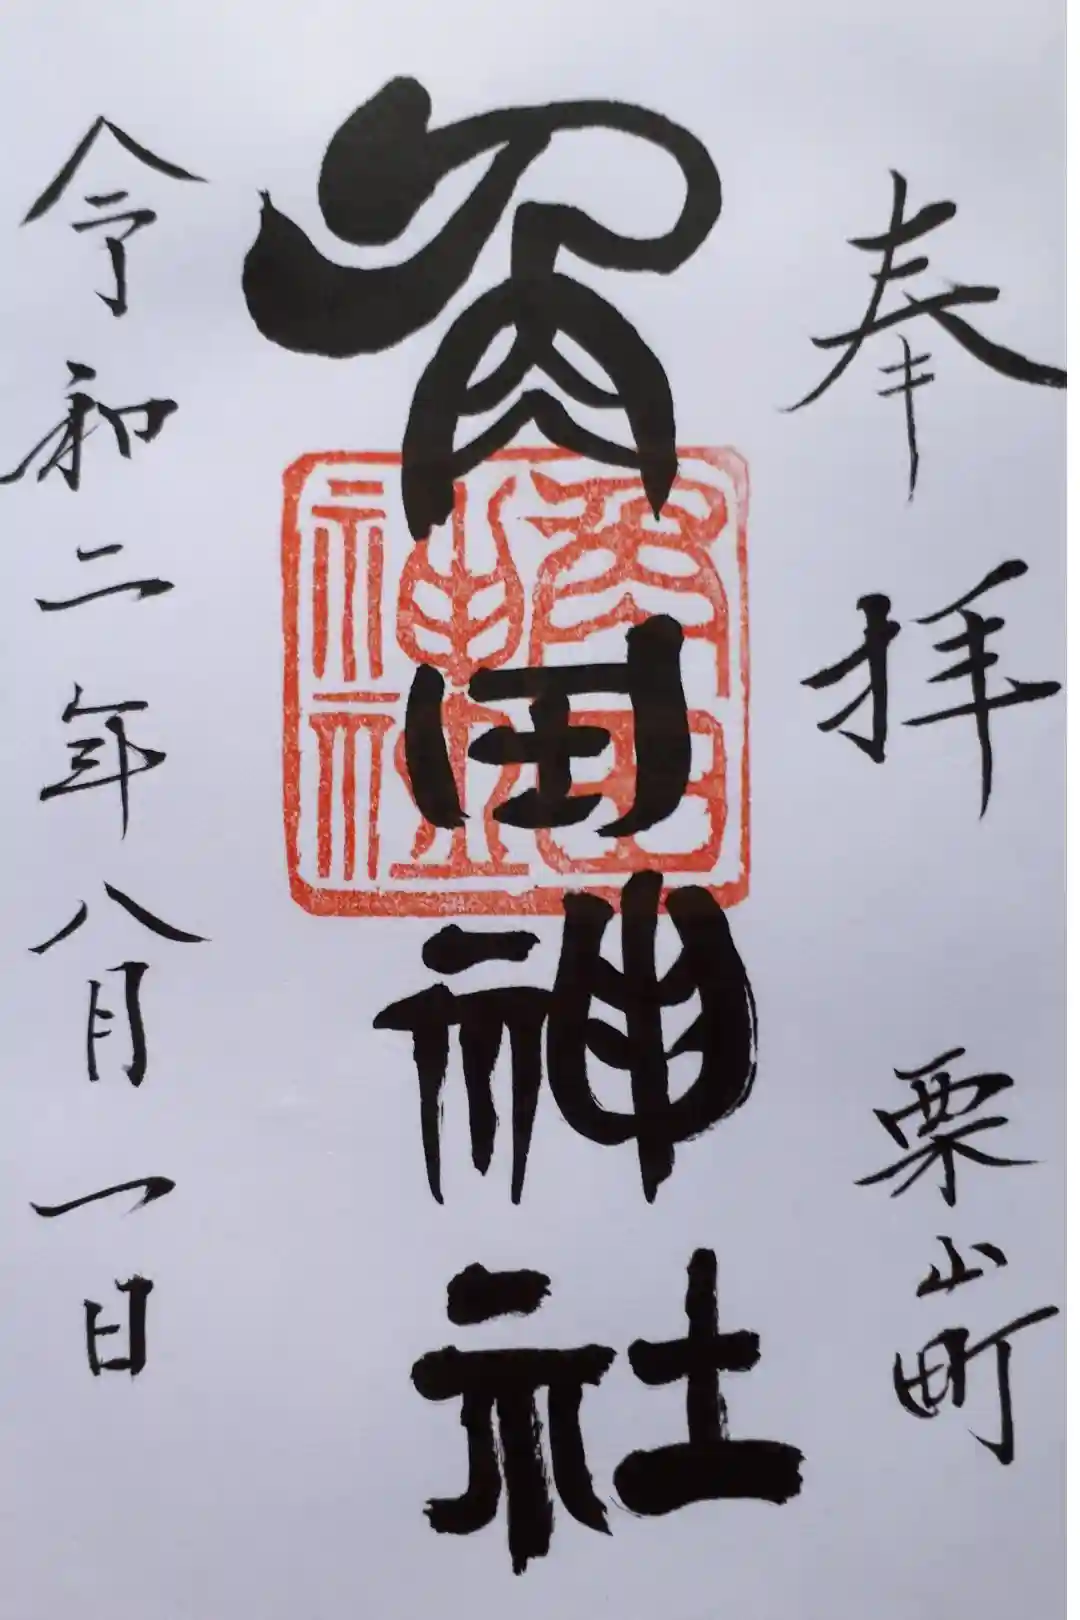 奉拝　栗山町
角田神社
角田
神社
令和二年八月一日